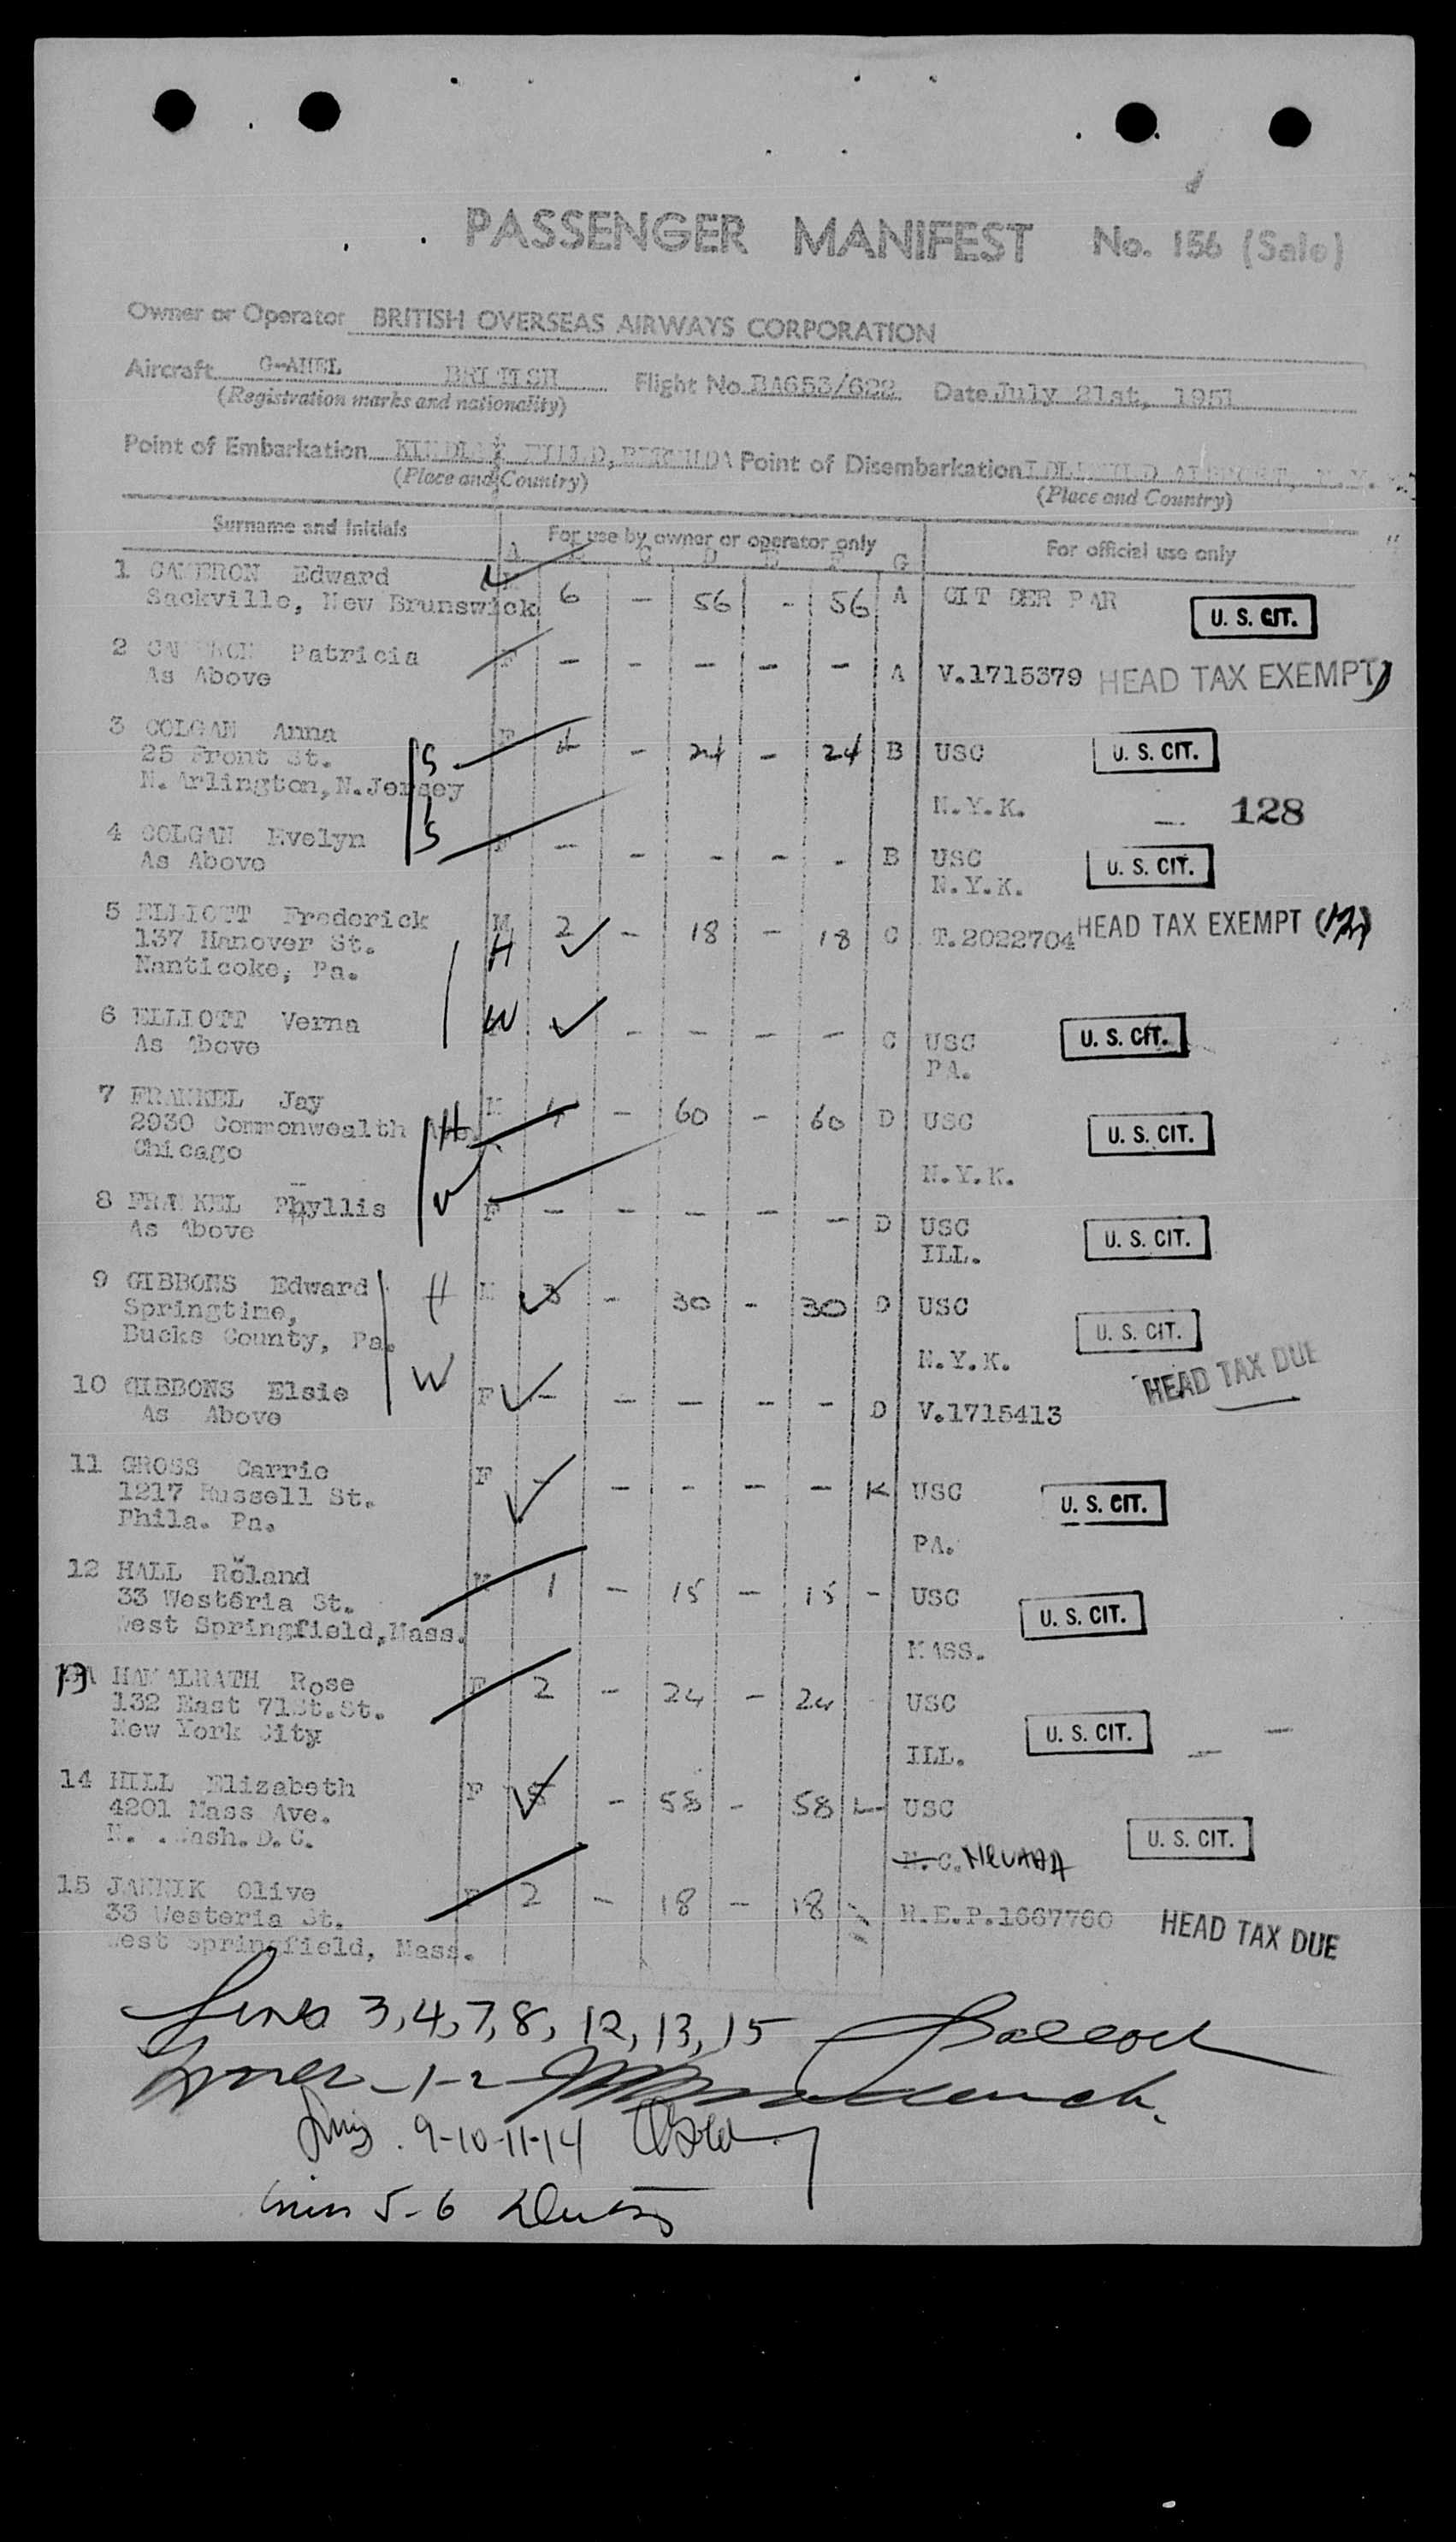 PASSENGER MANIFEST No. 156 (Sale)
Owner or Operator BRITISH OVERSEAS AIRWAYS CORPORATION
Aircraft G-AHEL BRITISH Flight No. BA653/622 Date July 21st, 1951
(Registration marks and nationality)
Point of Embarkation KINDLEY FIELD, BERMUDA Point of Disembarkation IDLEWILD AIRPORT, N.Y.
(Place and Country) (Place and Country)
Surname and Initials For use by owner or operator only For official use only
A B C D E F G
1 CAMERON Edward
Sackville, New Brunswick 6 - 56 - 56 A CIT DER PAR U. S. CIT.
2 CAMERON Patricia F - - - - - A V.1715379 HEAD TAX EXEMPT
As Above
3 COLGAN Anna F 4 - 24 - 24 B USC U. S. CIT.
25 Front St. S
N. Arlington, N. Jersey N.Y.K. — 128
4 COLGAN Evelyn S F - - - - - B USC U. S. CIT.
As Above N.Y.K.
5 ELLIOTT Frederick M 2 - 18 - 18 C T.2022704 HEAD TAX EXEMPT
137 Hanover St. H
Nanticoke, Pa.
6 ELLIOTT Verna W - - - - C USC U. S. CIT.
As Above PA.
7 FRANKEL Jay M 4 - 60 - 60 D USC U. S. CIT.
2930 Commonwealth Ave. H
Chicago N.Y.K.
8 FRANKEL Phyllis W F - - - - - D USC U. S. CIT.
As Above ILL.
9 GIBBONS Edward H M 3 - 30 - 30 D USC U. S. CIT.
Springtime,
Bucks County, Pa. N.Y.K.
HEAD TAX DUE
10 GIBBONS Elsie W F - - - - - D V.1715413
As Above
11 GROSS Carrie F - - - - - K USC U. S. CIT.
1217 Russell St.
Phila. Pa. PA.
12 HALL Roland M 1 - 15 - 15 - USC U. S. CIT.
33 Westeria St.
West Springfield, Mass. MASS.
13 HAMALRATH Rose F 2 - 24 - 24 USC U. S. CIT.
132 East 71St. St.
New York City ILL.
14 HILL Elizabeth F 5 - 58 - 58 L USC U. S. CIT.
4201 Mass Ave.
N. .Wash. D. C. N.C. NEVADA
15 JANNIK Olive F 2 - 18 - 18 R.E.P.1667760 HEAD TAX DUE
33 Westeria St.
West Springfield, Mass.
Lines 3,4,7,8, 12, 13, 15
Lines - 1-2 -
Lines . 9-10-11-14
Lines 5-6